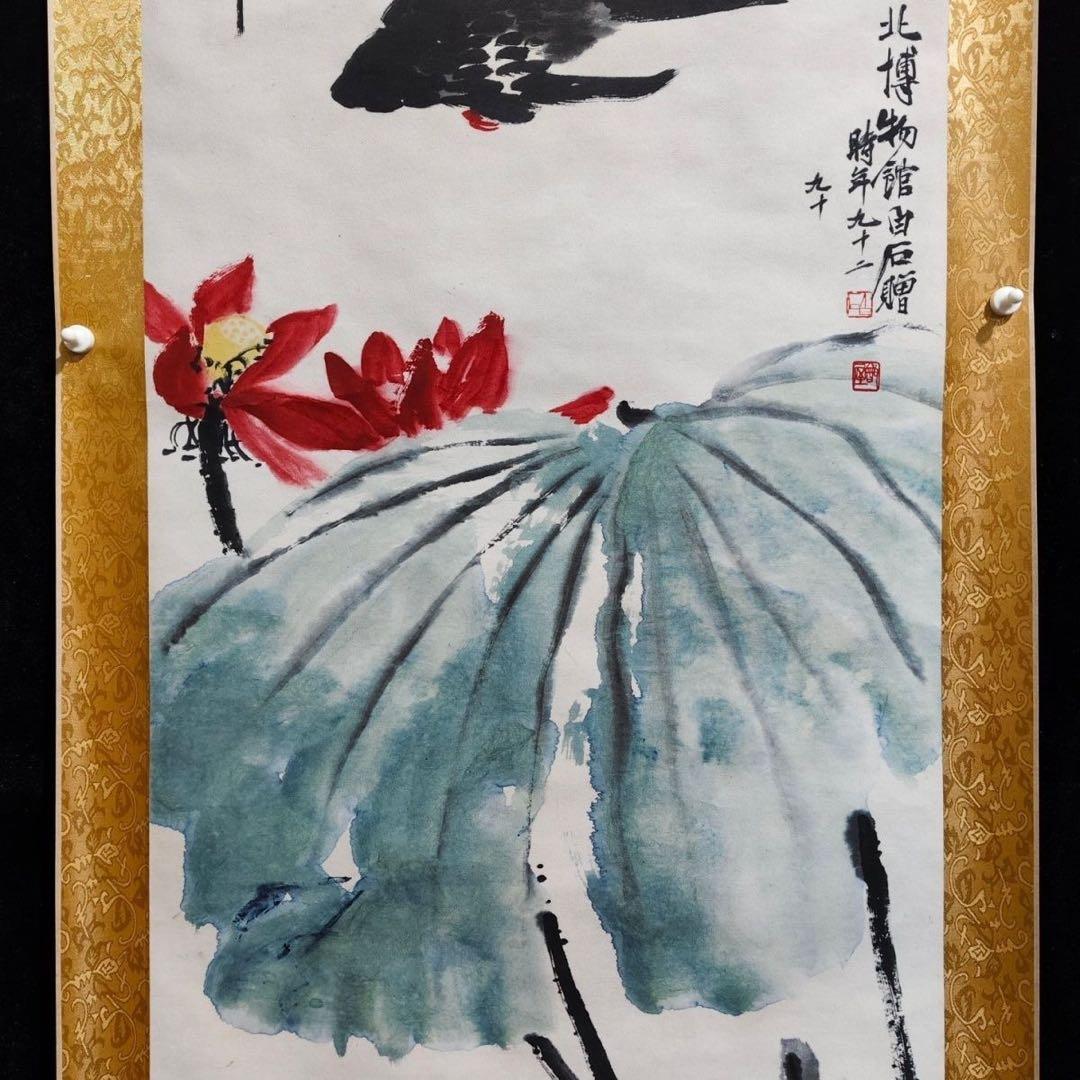 北博物館白石贈
時年九十二
九十